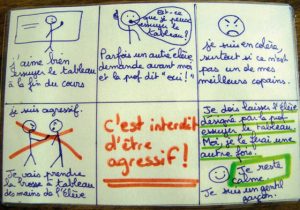 J'aime bien
essuyer le tableau
à la fin du cours
Est-ce
que je peux
essuyer le
tableau ?
Parfois un autre élève
demande avant moi
et le prof dit "oui !"
je suis en colère,
surtout si ce n'est
pas un de mes
meilleurs copains.
je suis agressif.
Je vais prendre
la brosse à tableau
des mains de l'élève
C'est interdit
d'être
agressif !
Je dois laisser l'élève
désigné par le prof
essuyer le tableau.
Moi, je le ferai une
autre fois.
Je reste
calme.
Je suis un gentil
garçon.